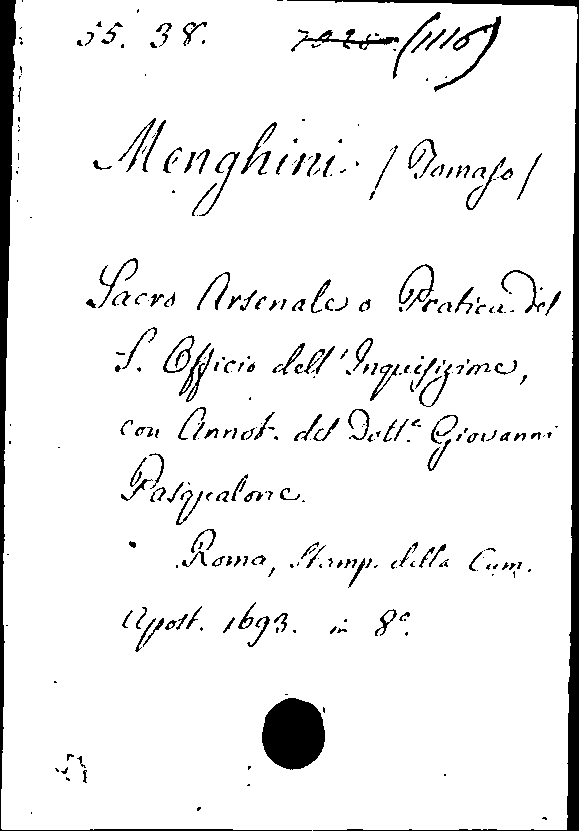 55. 38. 7925 (1116)
Menghini / Tomaso /
Sacro Arsenale o Pratica del
S. Officio dell'Inquisizione,
con Annot. del Dott.e Giovanni
Pasqualone.
Roma, Stamp. della Cam.
Apost. 1693. in 8o.